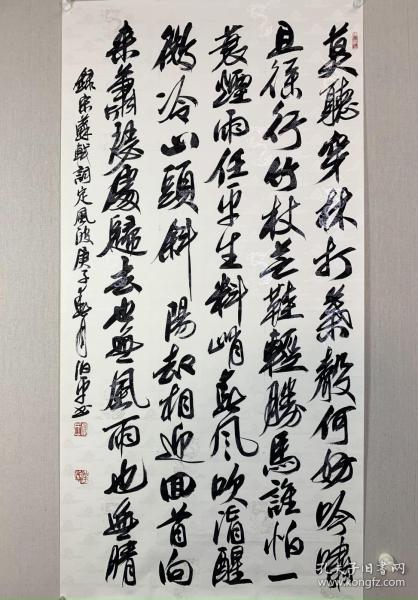 莫聽穿林打葉聲何妨吟嘯
且徐行竹杖芒鞋輕勝馬誰怕一
蓑煙雨任平生料峭春風吹酒醒
微冷山頭斜陽却相迎回首向
来蕭瑟處歸去也無風雨也無晴
錄宋蘇軾詞定風波庚子春月
孔夫子旧书网